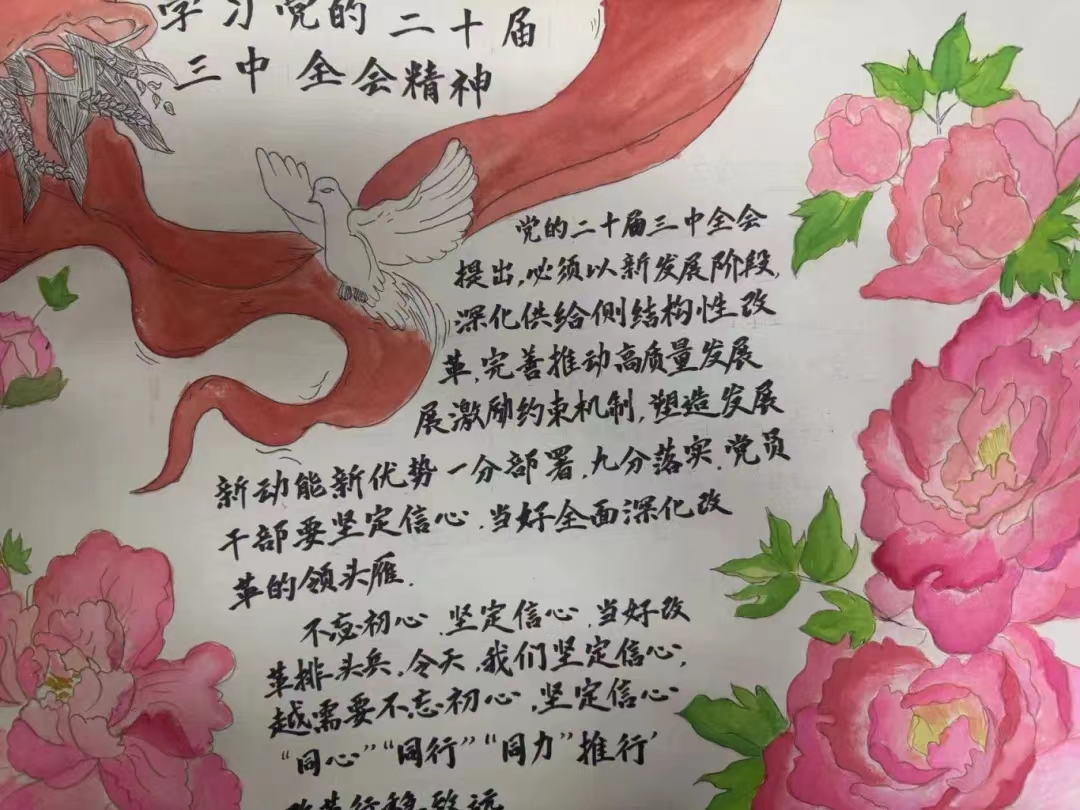 学习党的二十届
三中全会精神
党的二十届三中全会
提出,必须以新发展阶段,
深化供给侧结构性改
革,完善推动高质量发展
展激励约束机制,塑造发展
新动能新优势一分部署,九分落实,党员
干部要坚定信心,当好全面深化改
革的领头雁.
不忘初心,坚定信心,当好改
革排头兵,今天,我们坚定信心,
越需要不忘初心,坚定信心
“同心”“同行”“同力”推行'
改革行稳致远